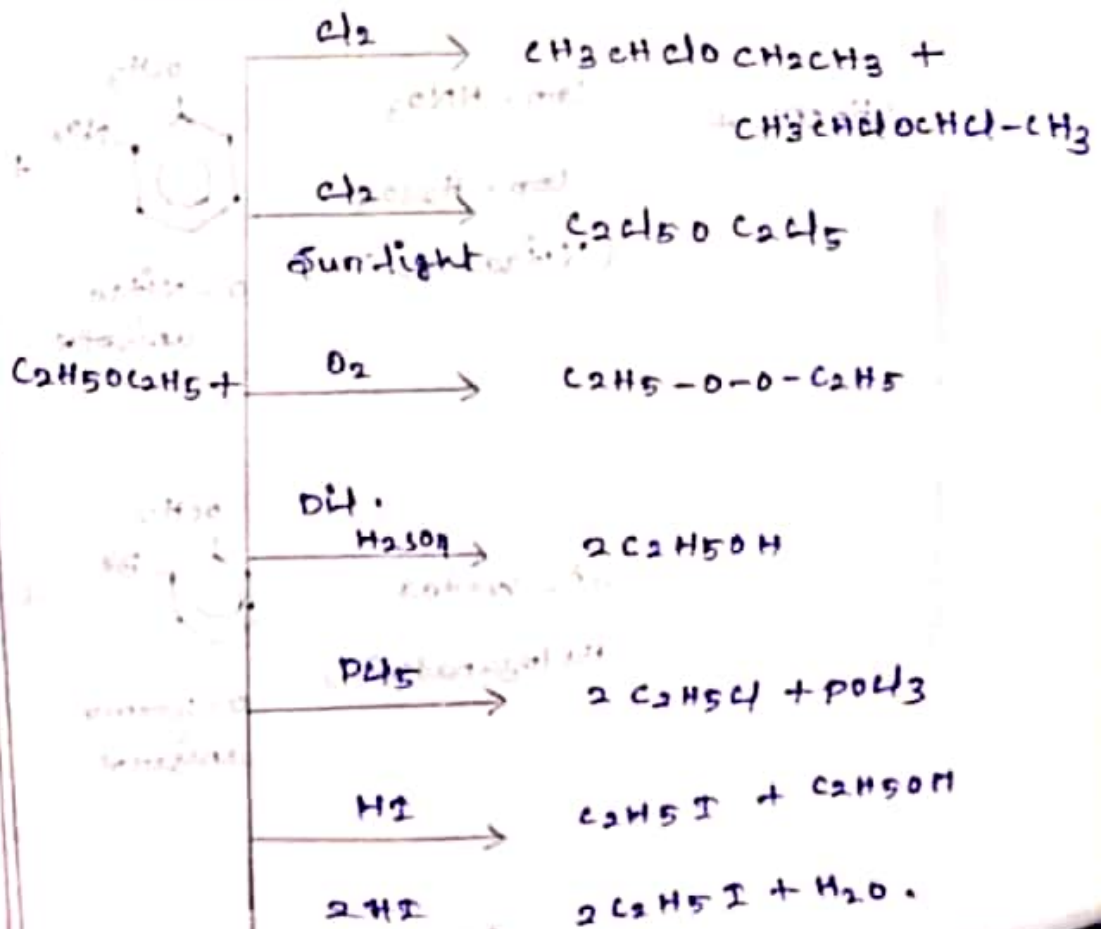 Cl2
CH3CHClOCH2CH3 +
CH3CHClOCHCl-CH3
Cl2
Sunlight
C2Cl5OC2Cl5
C2H5OC2H5+
O2
C2H5-O-O-C2H5
Dil.
H2SO4
2C2H5OH
PCl5
2C2H5Cl + POCl3
HI
C2H5I + C2H5OH
2HI
2C2H5I + H2O.